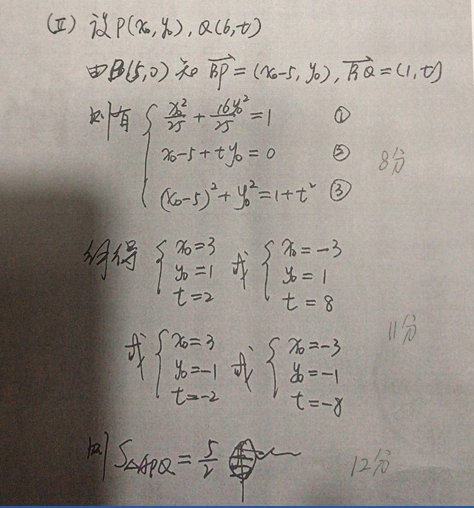 (Ⅱ) 设P(x₀,y₀), Q(6,t)
由B(5,0)知 $\overrightarrow{BP}$=(x₀-5, y₀), $\overrightarrow{BQ}$=(1,t)
则有 { x₀²/25 + 16y₀²/25 = 1 ①
x₀-5+ty₀=0 ②
8分
(x₀-5)²+y₀²=1+t² ③
解得 { x₀=3 y₀=1 t=2 或 { x₀=-3 y₀=1 t=8
或 { x₀=3 y₀=-1 t=-2 或 { x₀=-3 y₀=-1 t=-8
11分
则 S△APQ = 5/2
12分